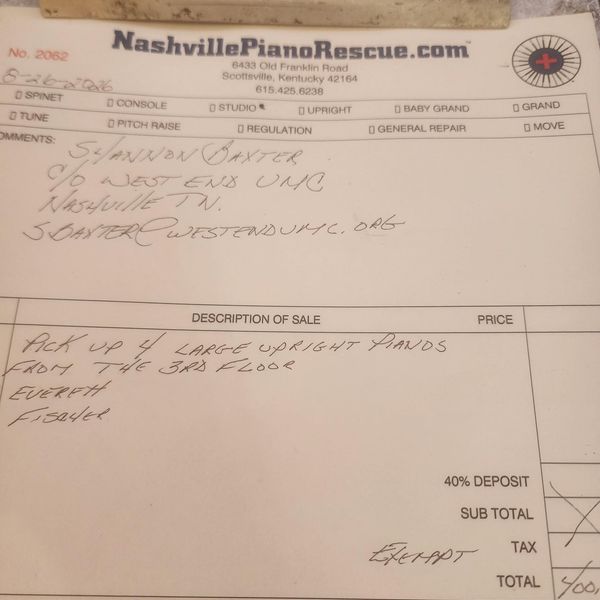 NashvillePianoRescue.com
No. 2062
6433 Old Franklin Road
Scottsville, Kentucky 42164
615.425.6238
SPINET CONSOLE STUDIO UPRIGHT BABY GRAND GRAND
TUNE PITCH RAISE REGULATION GENERAL REPAIR MOVE
OMMENTS: SHANNON BAXTER
C/O WEST END UMC
NASHVILLE TN.
SBAXTER@WESTENDUMC.ORG
DESCRIPTION OF SALE PRICE
PICK UP 4 LARGE UPRIGHT PIANOS
FROM THE 3RD FLOOR
EVERETT
FISCHER
40% DEPOSIT
SUB TOTAL
EXEMPT TAX
TOTAL 400.